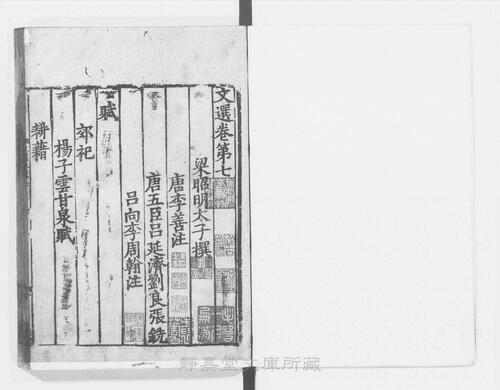 文選卷第七
梁昭明太子撰
唐李善注
唐五臣呂延濟劉良張銑
呂向李周翰注
賦
郊祀
楊子雲甘泉賦
耕藉
靜嘉堂文庫所藏